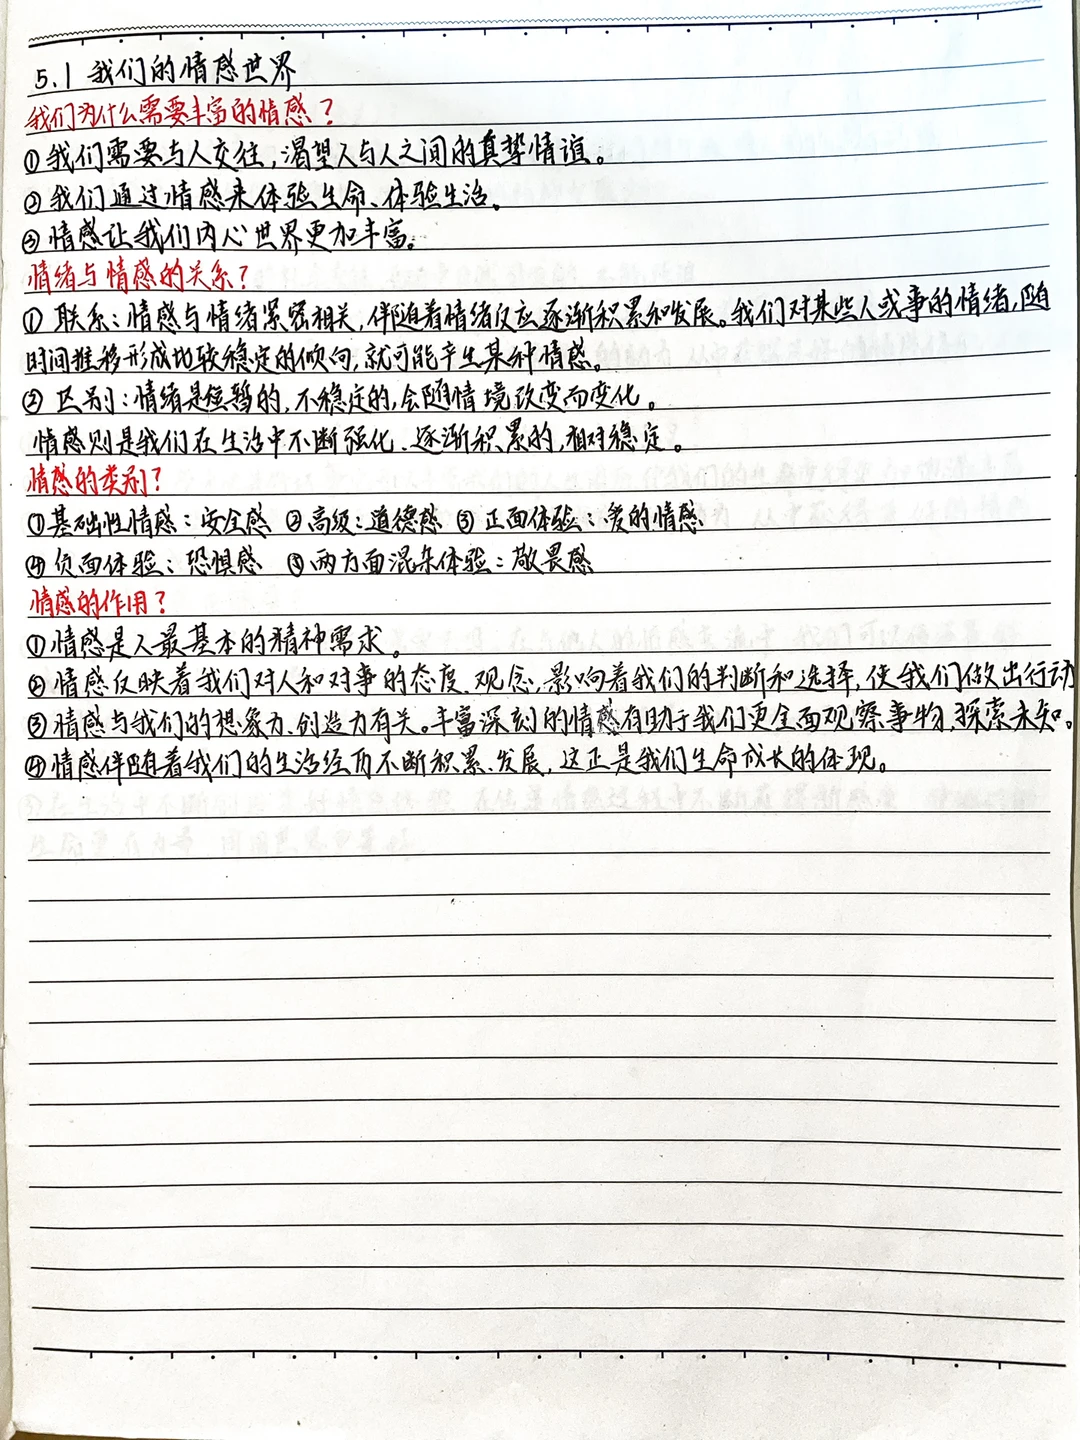 5.1 我们的情感世界
我们为什么需要丰富的情感？
①我们需要与人交往，渴望人与人之间的真挚情谊。
②我们通过情感来体验生命、体验生活。
③情感让我们内心世界更加丰富。
情绪与情感的关系？
① 联系：情感与情绪紧密相关，伴随着情绪反应逐渐积累和发展。我们对某些人或事的情绪，随
时间推移形成比较稳定的倾向，就可能产生某种情感。
② 区别：情绪是短暂的，不稳定的，会随情境改变而变化。
情感则是我们在生活中不断强化、逐渐积累的，相对稳定。
情感的类别？
①基础性情感：安全感 ②高级：道德感 ③正面体验：爱的情感
④负面体验：恐惧感 ⑤两方面混杂体验：敬畏感
情感的作用？
①情感是人最基本的精神需求。
②情感反映着我们对人和对事的态度、观念，影响着我们的判断和选择，使我们做出行动
③情感与我们的想象力、创造力有关。丰富深刻的情感有助于我们更全面观察事物，探索未知。
④情感伴随着我们的生活经历不断积累、发展，这正是我们生命成长的体现。